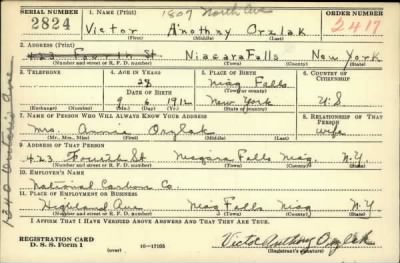 SERIAL NUMBER
1. NAME (Print)
1807 North Ave
ORDER NUMBER
2824
Victor Anothny Orzlak
2417
(First) (Middle) (Last)
2. ADDRESS (Print)
423 Fourth St. Niagara Falls New York
(Number and street or R. F. D. number) (Town) (County) (State)
3. TELEPHONE
4. AGE IN YEARS
5. PLACE OF BIRTH
6. COUNTRY OF CITIZENSHIP
28
Niag Falls
DATE OF BIRTH
(Town or county)
9 6 1912
New York
U S
(Exchange) (Number)
(Mo.) (Day) (Yr.)
(State or country)
7. NAME OF PERSON WHO WILL ALWAYS KNOW YOUR ADDRESS
8. RELATIONSHIP OF THAT PERSON
Mrs. Annia Orzlak
wife
(Mr., Mrs., Miss) (First) (Middle) (Last)
9. ADDRESS OF THAT PERSON
423 Fourth St Niagara Falls Niag. N.Y.
(Number and street or R. F. D. number) (Town) (County) (State)
10. EMPLOYER'S NAME
National Carbon Co.
11. PLACE OF EMPLOYMENT OR BUSINESS
Highland Ave. Niag Falls Niag N.Y.
(Number and street or R. F. D. number) (Town) (County) (State)
I AFFIRM THAT I HAVE VERIFIED ABOVE ANSWERS AND THAT THEY ARE TRUE.
REGISTRATION CARD
D. S. S. Form 1
(over)
16—17105
Victor Anthony Orzlak
(Registrant's signature)
1340 Ontario Ave